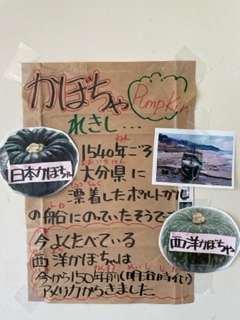 かぼちゃ
Pumpkin
れきし...
1540年ごろ
大分県に
漂着したポルトガル
の船にのっていたそうです
日本かぼちゃ
西洋かぼちゃ
今よくたべている
西洋かぼちゃは
今から150年前(明治時代)
アメリカからきました